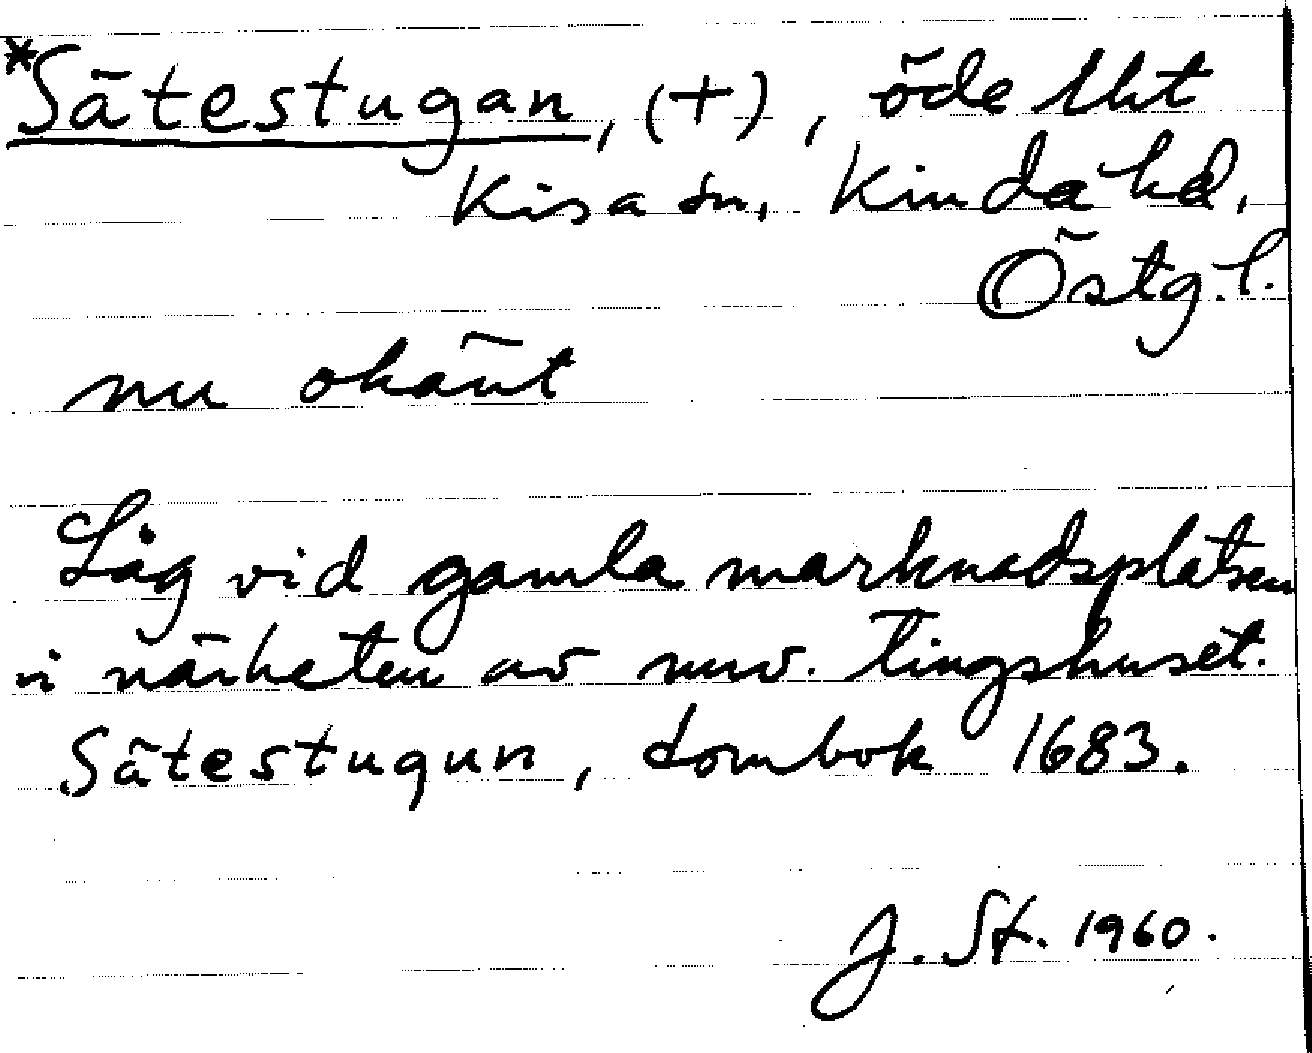 *Sätestugan, (+), öde lht
Kisa sn, Kinda hd,
Östg. l.
nu okänt
Låg vid gamla marknadsplatsen
i närheten av nuv. tingshuset.
Sätestugun, dombok 1683.
J. St. 1960.